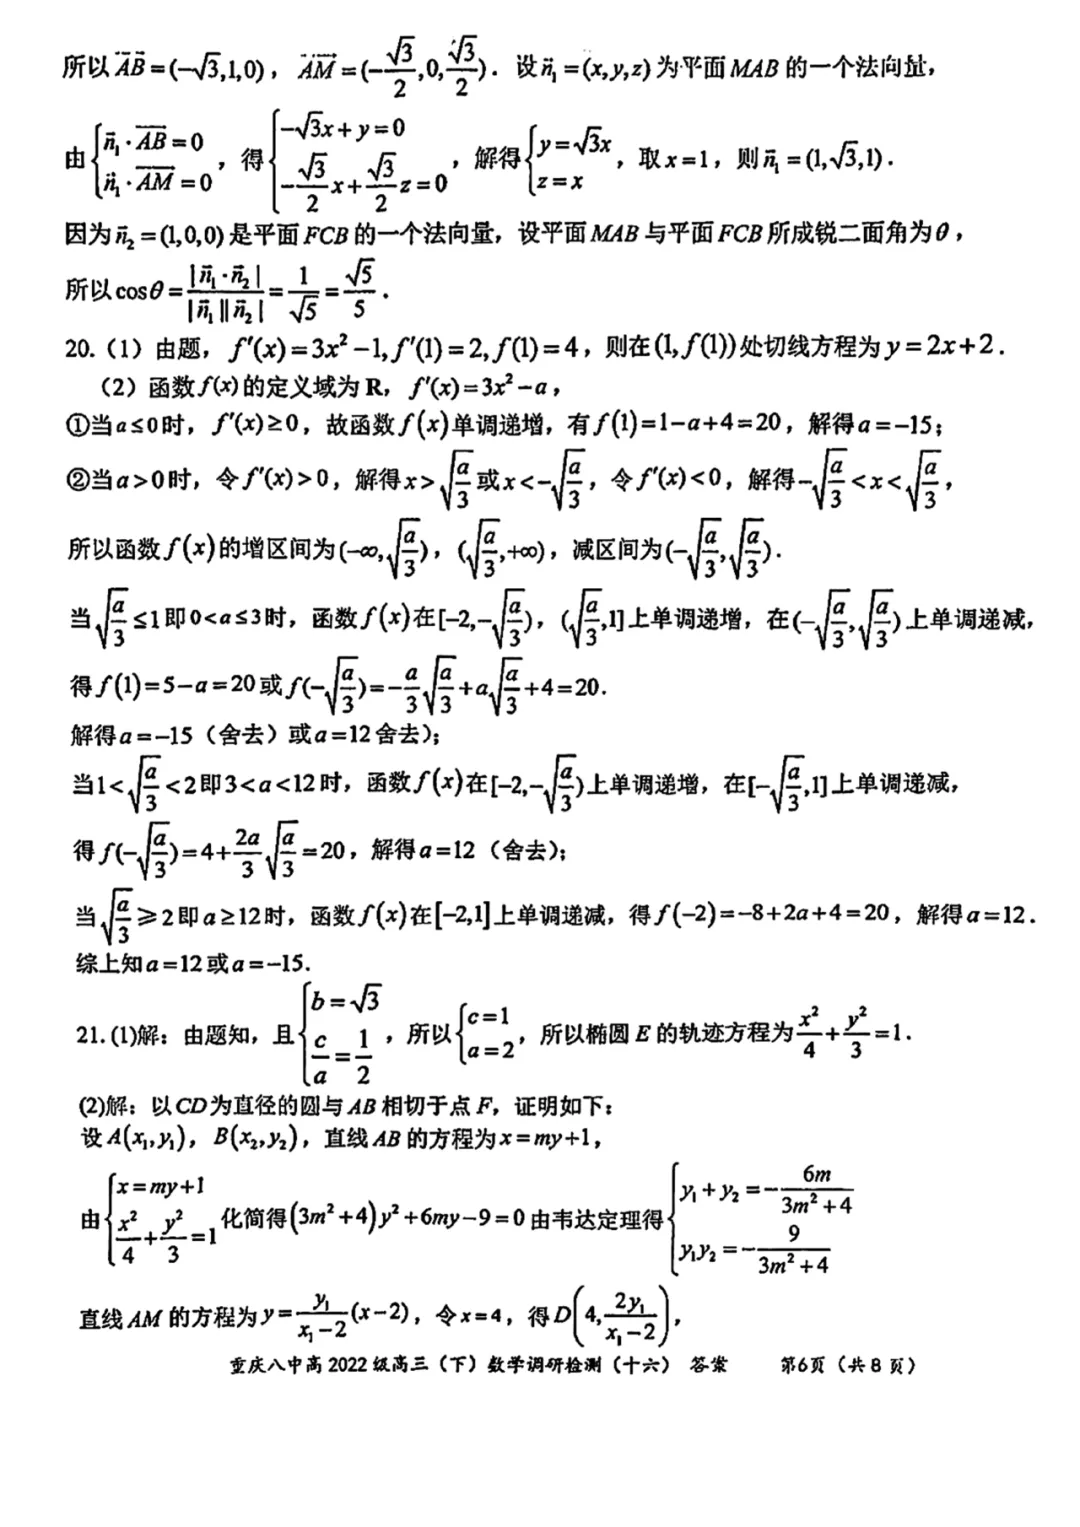 所以 $\overrightarrow{AB}=(-\sqrt{3},1,0)$，$\overrightarrow{AM}=(-\frac{\sqrt{3}}{2},0,\frac{\sqrt{3}}{2})$．设 $\vec{n}_1=(x,y,z)$ 为平面 MAB 的一个法向量，
由 $\begin{cases}\vec{n}_1\cdot\overrightarrow{AB}=0\\\vec{n}_1\cdot\overrightarrow{AM}=0\end{cases}$，得 $\begin{cases}-\sqrt{3}x+y=0\\-\frac{\sqrt{3}}{2}x+\frac{\sqrt{3}}{2}z=0\end{cases}$，解得 $\begin{cases}y=\sqrt{3}x\\z=x\end{cases}$，取 x=1，则 $\vec{n}_1=(1,\sqrt{3},1)$．
因为 $\vec{n}_2=(1,0,0)$ 是平面 FCB 的一个法向量，设平面 MAB 与平面 FCB 所成锐二面角为 θ，
所以 $\cos\theta=\frac{|\vec{n}_1\cdot\vec{n}_2|}{|\vec{n}_1||\vec{n}_2|}=\frac{1}{\sqrt{5}}=\frac{\sqrt{5}}{5}$．
20.（1）由题，$f'(x)=3x^2-1,f'(1)=2,f(1)=4$，则在 (1,f(1)) 处切线方程为 y=2x+2．
（2）函数 f(x) 的定义域为 R，$f'(x)=3x^2-a$，
①当 a≤0 时，f'(x)≥0，故函数 f(x) 单调递增，有 f(1)=1-a+4=20，解得 a=-15；
②当 a>0 时，令 f'(x)>0，解得 $x>\sqrt{\frac{a}{3}}$ 或 $x<-\sqrt{\frac{a}{3}}$，令 f'(x)<0，解得 $-\sqrt{\frac{a}{3}}<x<\sqrt{\frac{a}{3}}$，
所以函数 f(x) 的增区间为 $(-\infty,\sqrt{\frac{a}{3}})$，$(\sqrt{\frac{a}{3}},+\infty)$，减区间为 $(-\sqrt{\frac{a}{3}},\sqrt{\frac{a}{3}})$．
当 $\sqrt{\frac{a}{3}}\le 1$ 即 0<a≤3 时，函数 f(x) 在 $[-2,-\sqrt{\frac{a}{3}})$，$(\sqrt{\frac{a}{3}},1]$ 上单调递增，在 $(-\sqrt{\frac{a}{3}},\sqrt{\frac{a}{3}})$ 上单调递减，
得 f(1)=5-a=20 或 $f(-\sqrt{\frac{a}{3}})=-\frac{a}{3}\sqrt{\frac{a}{3}}+a\sqrt{\frac{a}{3}}+4=20$.
解得 a=-15（舍去）或 a=12 舍去）；
当 $1<\sqrt{\frac{a}{3}}<2$ 即 3<a<12 时，函数 f(x) 在 $[-2,-\sqrt{\frac{a}{3}})$ 上单调递增，在 $[-\sqrt{\frac{a}{3}},1]$ 上单调递减，
得 $f(-\sqrt{\frac{a}{3}})=4+\frac{2a}{3}\sqrt{\frac{a}{3}}=20$，解得 a=12（舍去）；
当 $\sqrt{\frac{a}{3}}\geqslant 2$ 即 a≥12 时，函数 f(x) 在 [-2,1] 上单调递减，得 f(-2)=-8+2a+4=20，解得 a=12．
综上知 a=12 或 a=-15．
21.(1)解：由题知，且 $\begin{cases}b=\sqrt{3}\\\frac{c}{a}=\frac{1}{2}\end{cases}$，所以 $\begin{cases}c=1\\a=2\end{cases}$，所以椭圆 E 的轨迹方程为 $\frac{x^2}{4}+\frac{y^2}{3}=1$．
(2)解：以 CD 为直径的圆与 AB 相切于点 F，证明如下：
设 $A(x_1,y_1)$，$B(x_2,y_2)$，直线 AB 的方程为 x=my+1，
由 $\begin{cases}x=my+1\\\frac{x^2}{4}+\frac{y^2}{3}=1\end{cases}$ 化简得 $(3m^2+4)y^2+6my-9=0$ 由韦达定理得 $\begin{cases}y_1+y_2=-\frac{6m}{3m^2+4}\\y_1y_2=-\frac{9}{3m^2+4}\end{cases}$
直线 AM 的方程为 $y=\frac{y_1}{x_1-2}(x-2)$，令 x=4，得 $D\left(4,\frac{2y_1}{x_1-2}\right)$，
重庆八中高 2022 级高三（下）数学调研检测（十六） 答案 第6页（共 8 页）